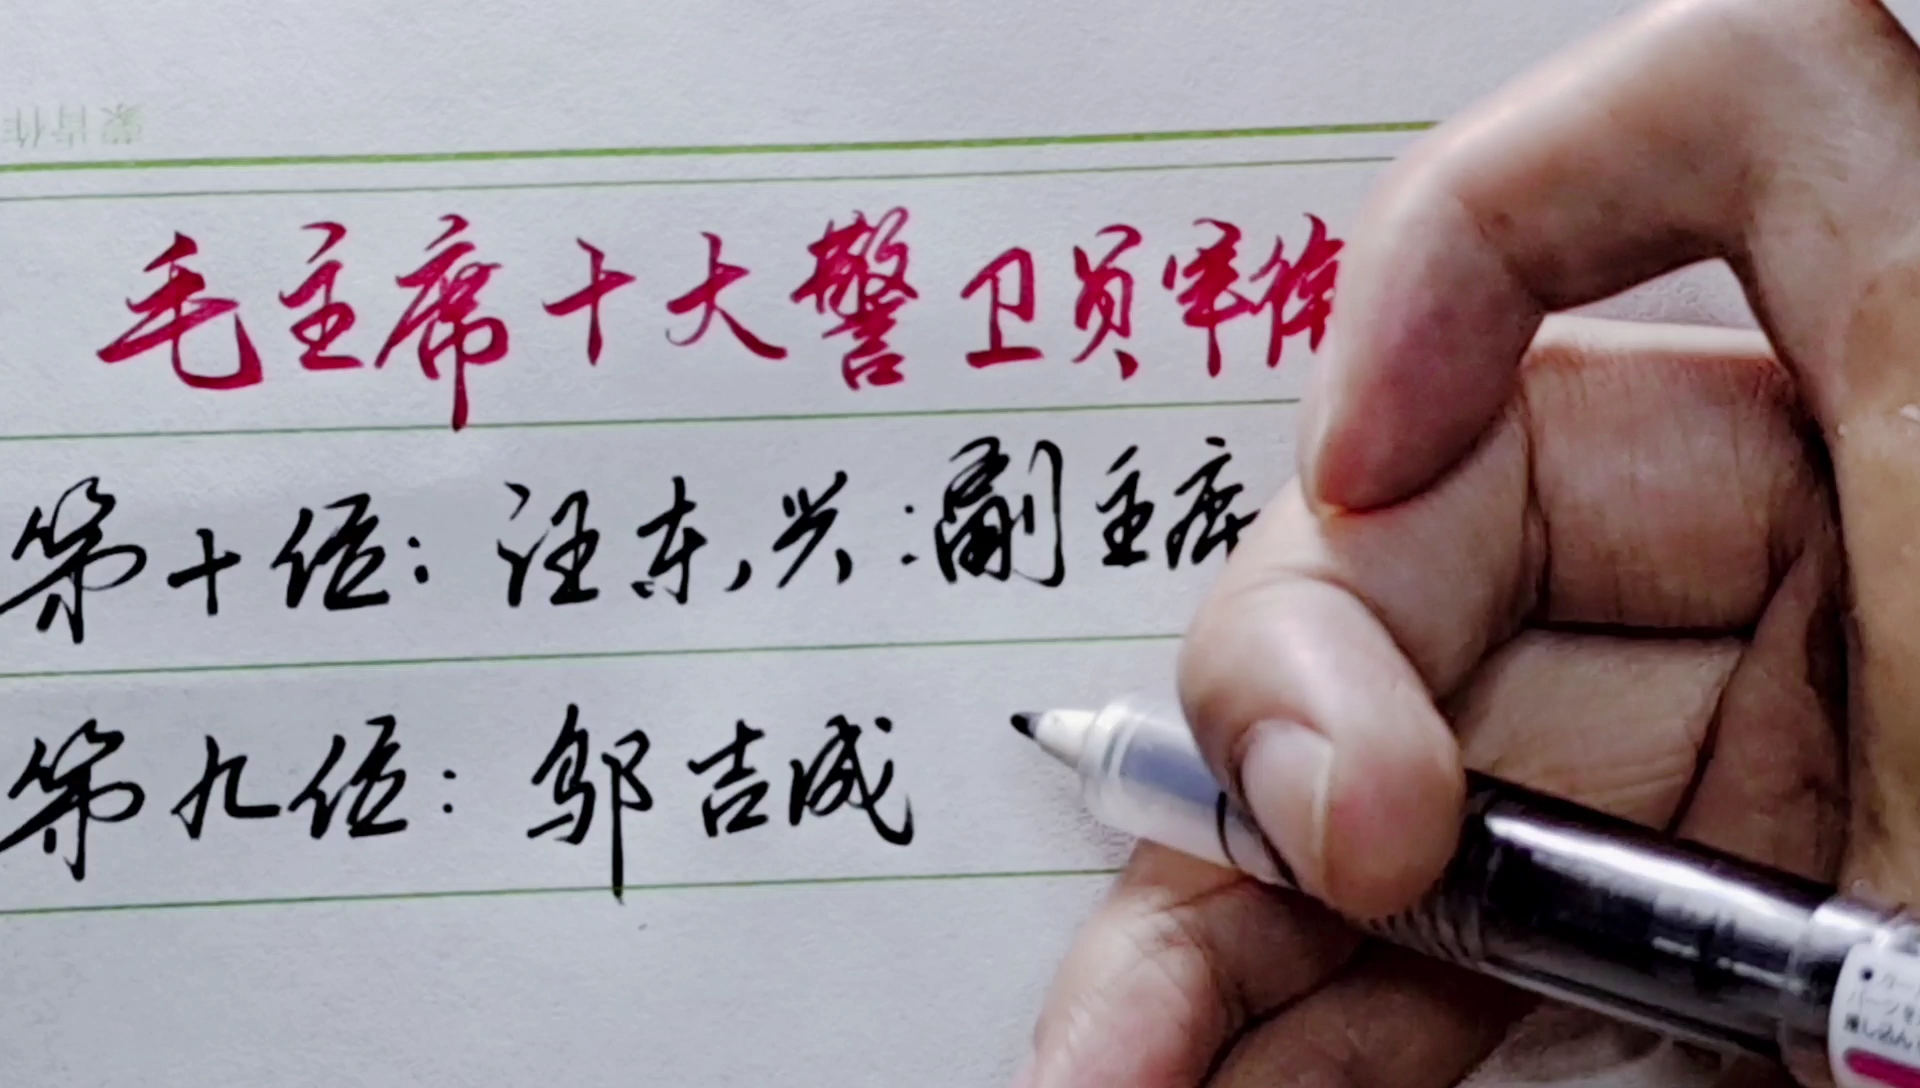 毛主席十大警卫员军衔
第十位：汪东兴：副主席
第九位：邬吉成